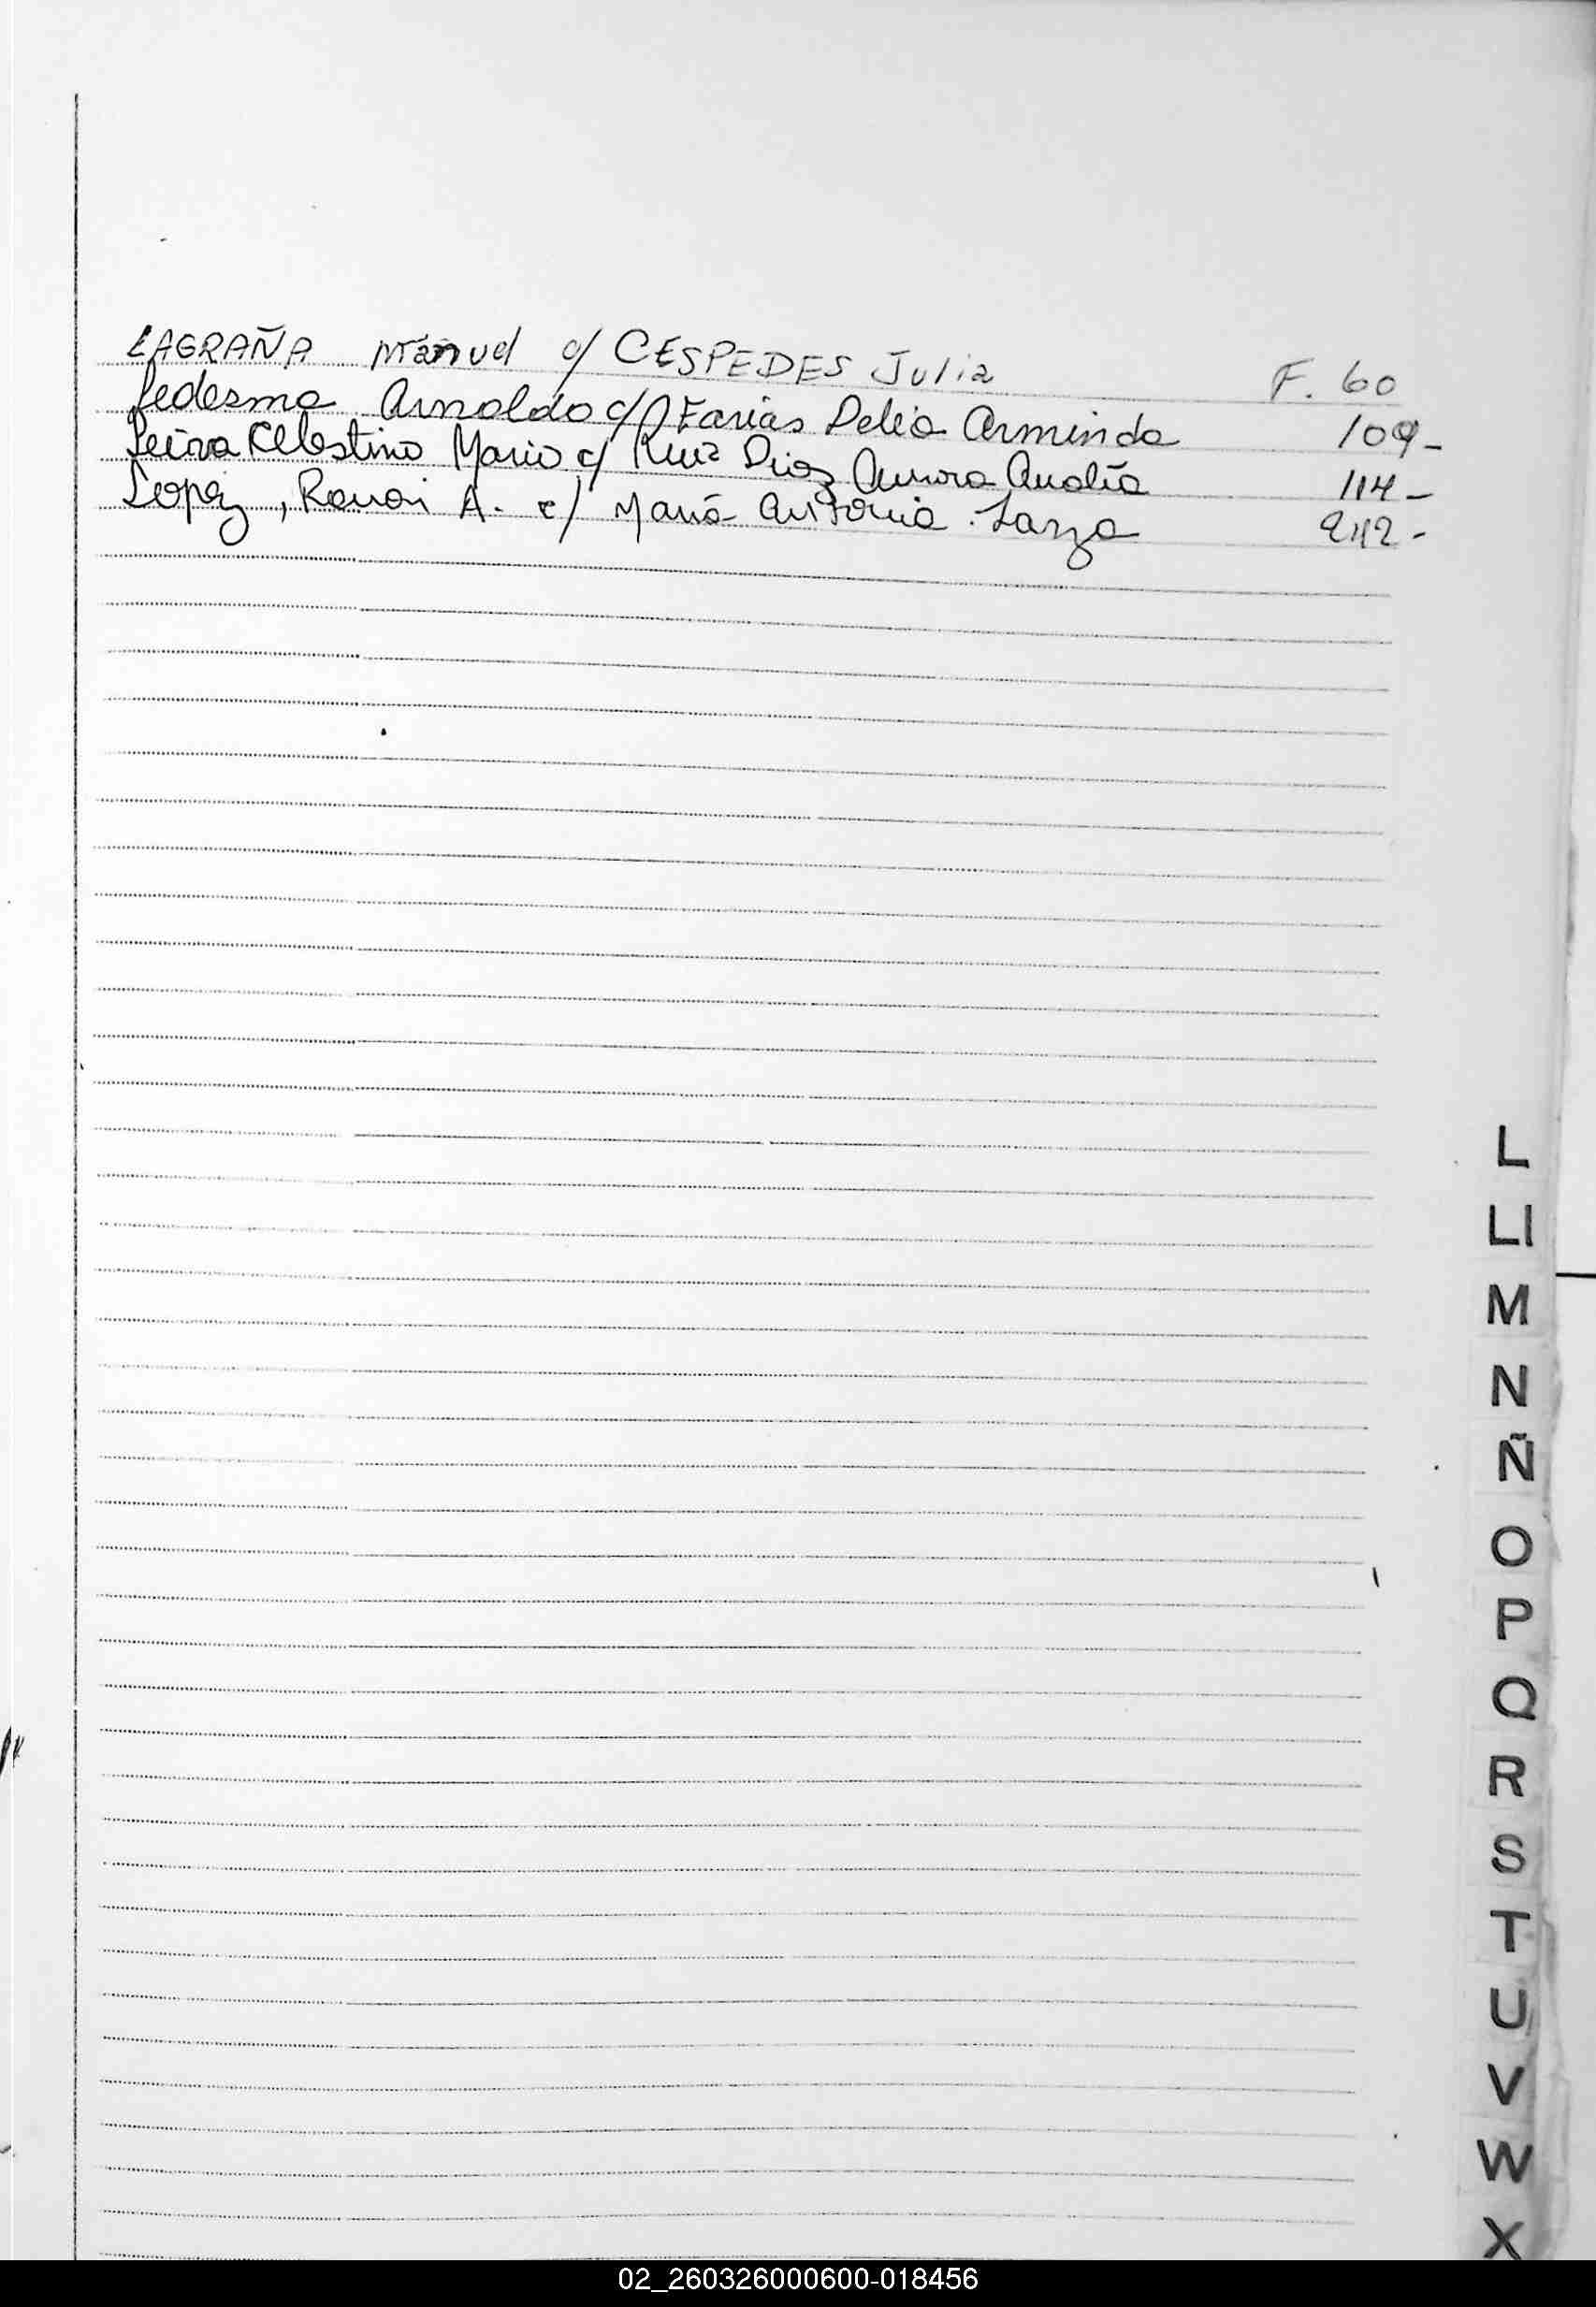 LAGRAÑA Manuel c/ CESPEDES Julia F. 60
Ledesma Arnoldo c/ Farias Delia Arminda 109-
Leiva Celestino Mario c/ Ruiz Diaz Aurora Analía 114-
Lopez, Ramon A. c/ María Antonia Larza 242-
L
Ll
M
N
Ñ
O
P
Q
R
S
T
U
V
W
X
02_260326000600-018456